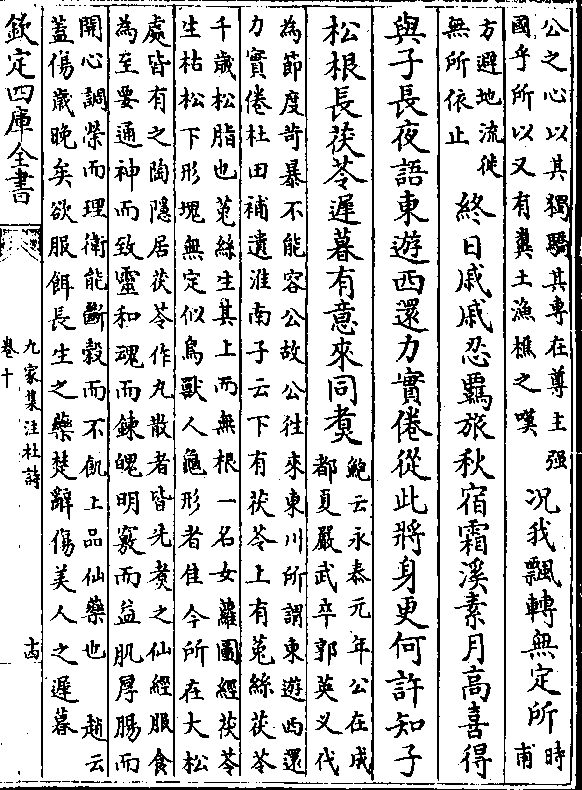 公之心以其獨驕其專在尊主强
國乎所以又有糞土漁樵之嘆
況我飄轉無定所
時甫
方避地流徙
無所依止
終日戚戚忍羈旅秋宿霜溪素月高喜得
與子長夜語東遊西還力實倦從此將身更何許知子
松根長茯苓遲暮有意來同煑
鮑云永泰元年公在成
都夏嚴武卒郭英乂代
為節度苛暴不能容公故公往來東川所謂東遊西還
力實倦杜田補遺淮南子云下有茯苓上有菟絲茯苓
千歲松脂也菟絲生其上而無根一名女蘿圖經茯苓
生枯松下形塊無定似鳥獸人龜形者佳今所在大松
處皆有之陶隱居茯苓作丸散者皆先煑之仙經服食
為至要通神而致靈和魂而鍊魄明竅而益肌厚腸而
開心調榮而理衛能斷穀而不飢上品仙藥也
趙云
蓋傷歲晚矣欲服餌長生之藥楚辭傷美人之遲暮
欽定四庫全書
九家集注杜詩
卷十
十四